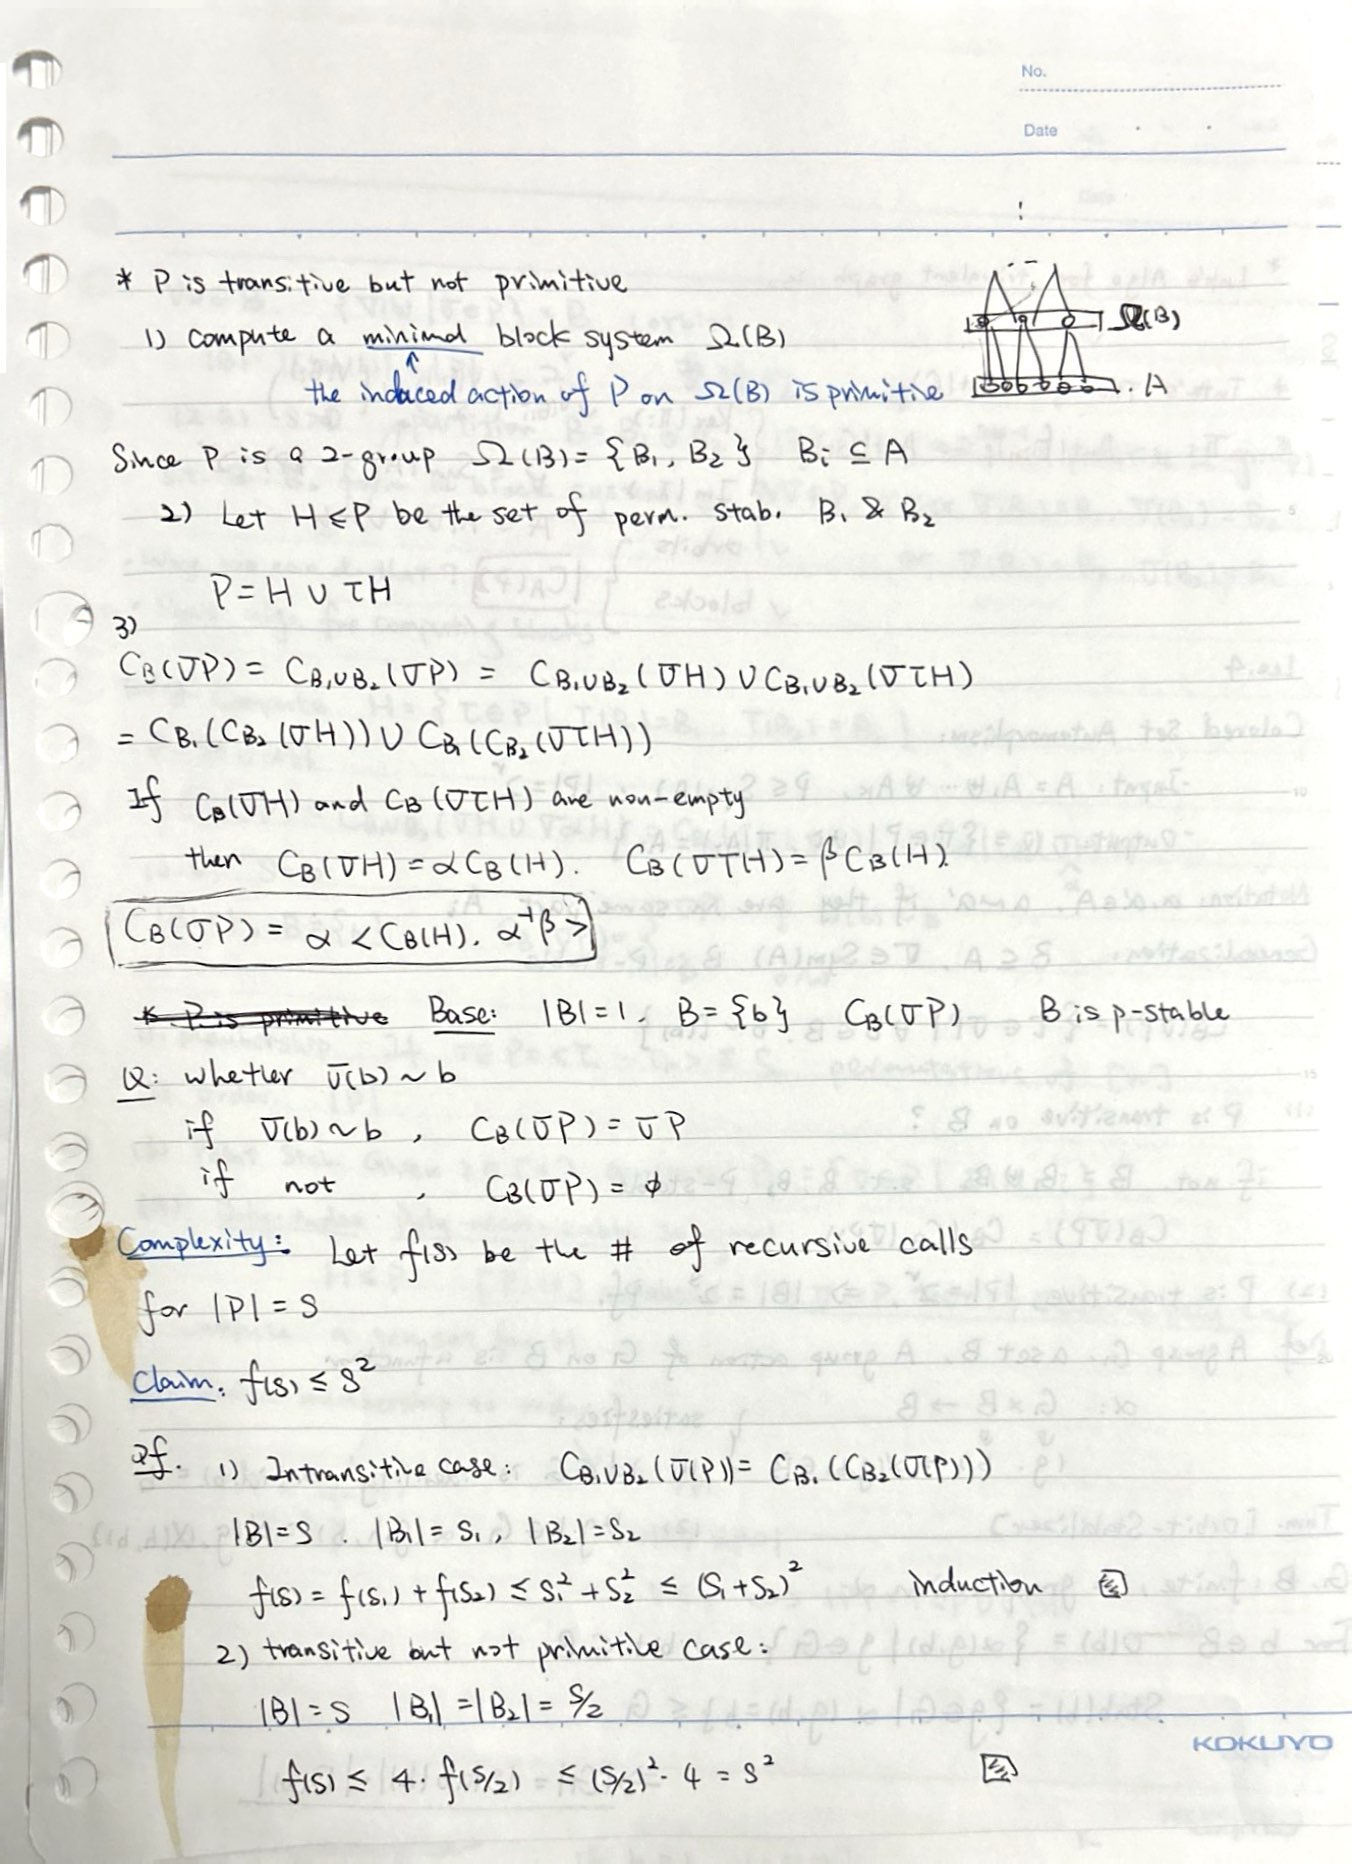 No.
Date
!
* P is transitive but not primitive
1) compute a minimal block system Ω(B)
↑
the induced action of P on Ω(B) is primitive
Ω(B)
A
Since P is a 2-group Ω(B) = {B₁, B₂} Bᵢ ⊆ A
2) Let H ≤ P be the set of perm. stab. B₁ & B₂
P = H ∪ τH
3)
C_B(σP) = C_{B₁∪B₂}(σP) = C_{B₁∪B₂}(σH) ∪ C_{B₁∪B₂}(στH)
= C_{B₁}(C_{B₂}(σH)) ∪ C_{B₁}(C_{B₂}(στH))
If C_B(σH) and C_B(στH) are non-empty
then C_B(σH) = α C_B(H). C_B(στH) = β C_B(H).
C_B(σP) = α <C_B(H). α⁻¹β>
* P is primitive Base: |B| = 1, B = {b} C_B(σP) B is p-stable
Q: whether σ(b) ~ b
if σ(b) ~ b, C_B(σP) = σP
if not, C_B(σP) = ϕ
Complexity: Let f(s) be the # of recursive calls
for |P| = s
Claim: f(s) ≤ s²
Pf. 1) Intransitive case: C_{B₁∪B₂}(σ(P)) = C_{B₁}(C_{B₂}(σ(P)))
|B| = s. |B₁| = s₁, |B₂| = s₂
f(s) = f(s₁) + f(s₂) ≤ s₁² + s₂² ≤ (s₁+s₂)² induction
2) transitive but not primitive case:
|B| = s |B₁| = |B₂| = s/2
KOKUYO
f(s) ≤ 4· f(s/2) ≤ (s/2)²· 4 = s²